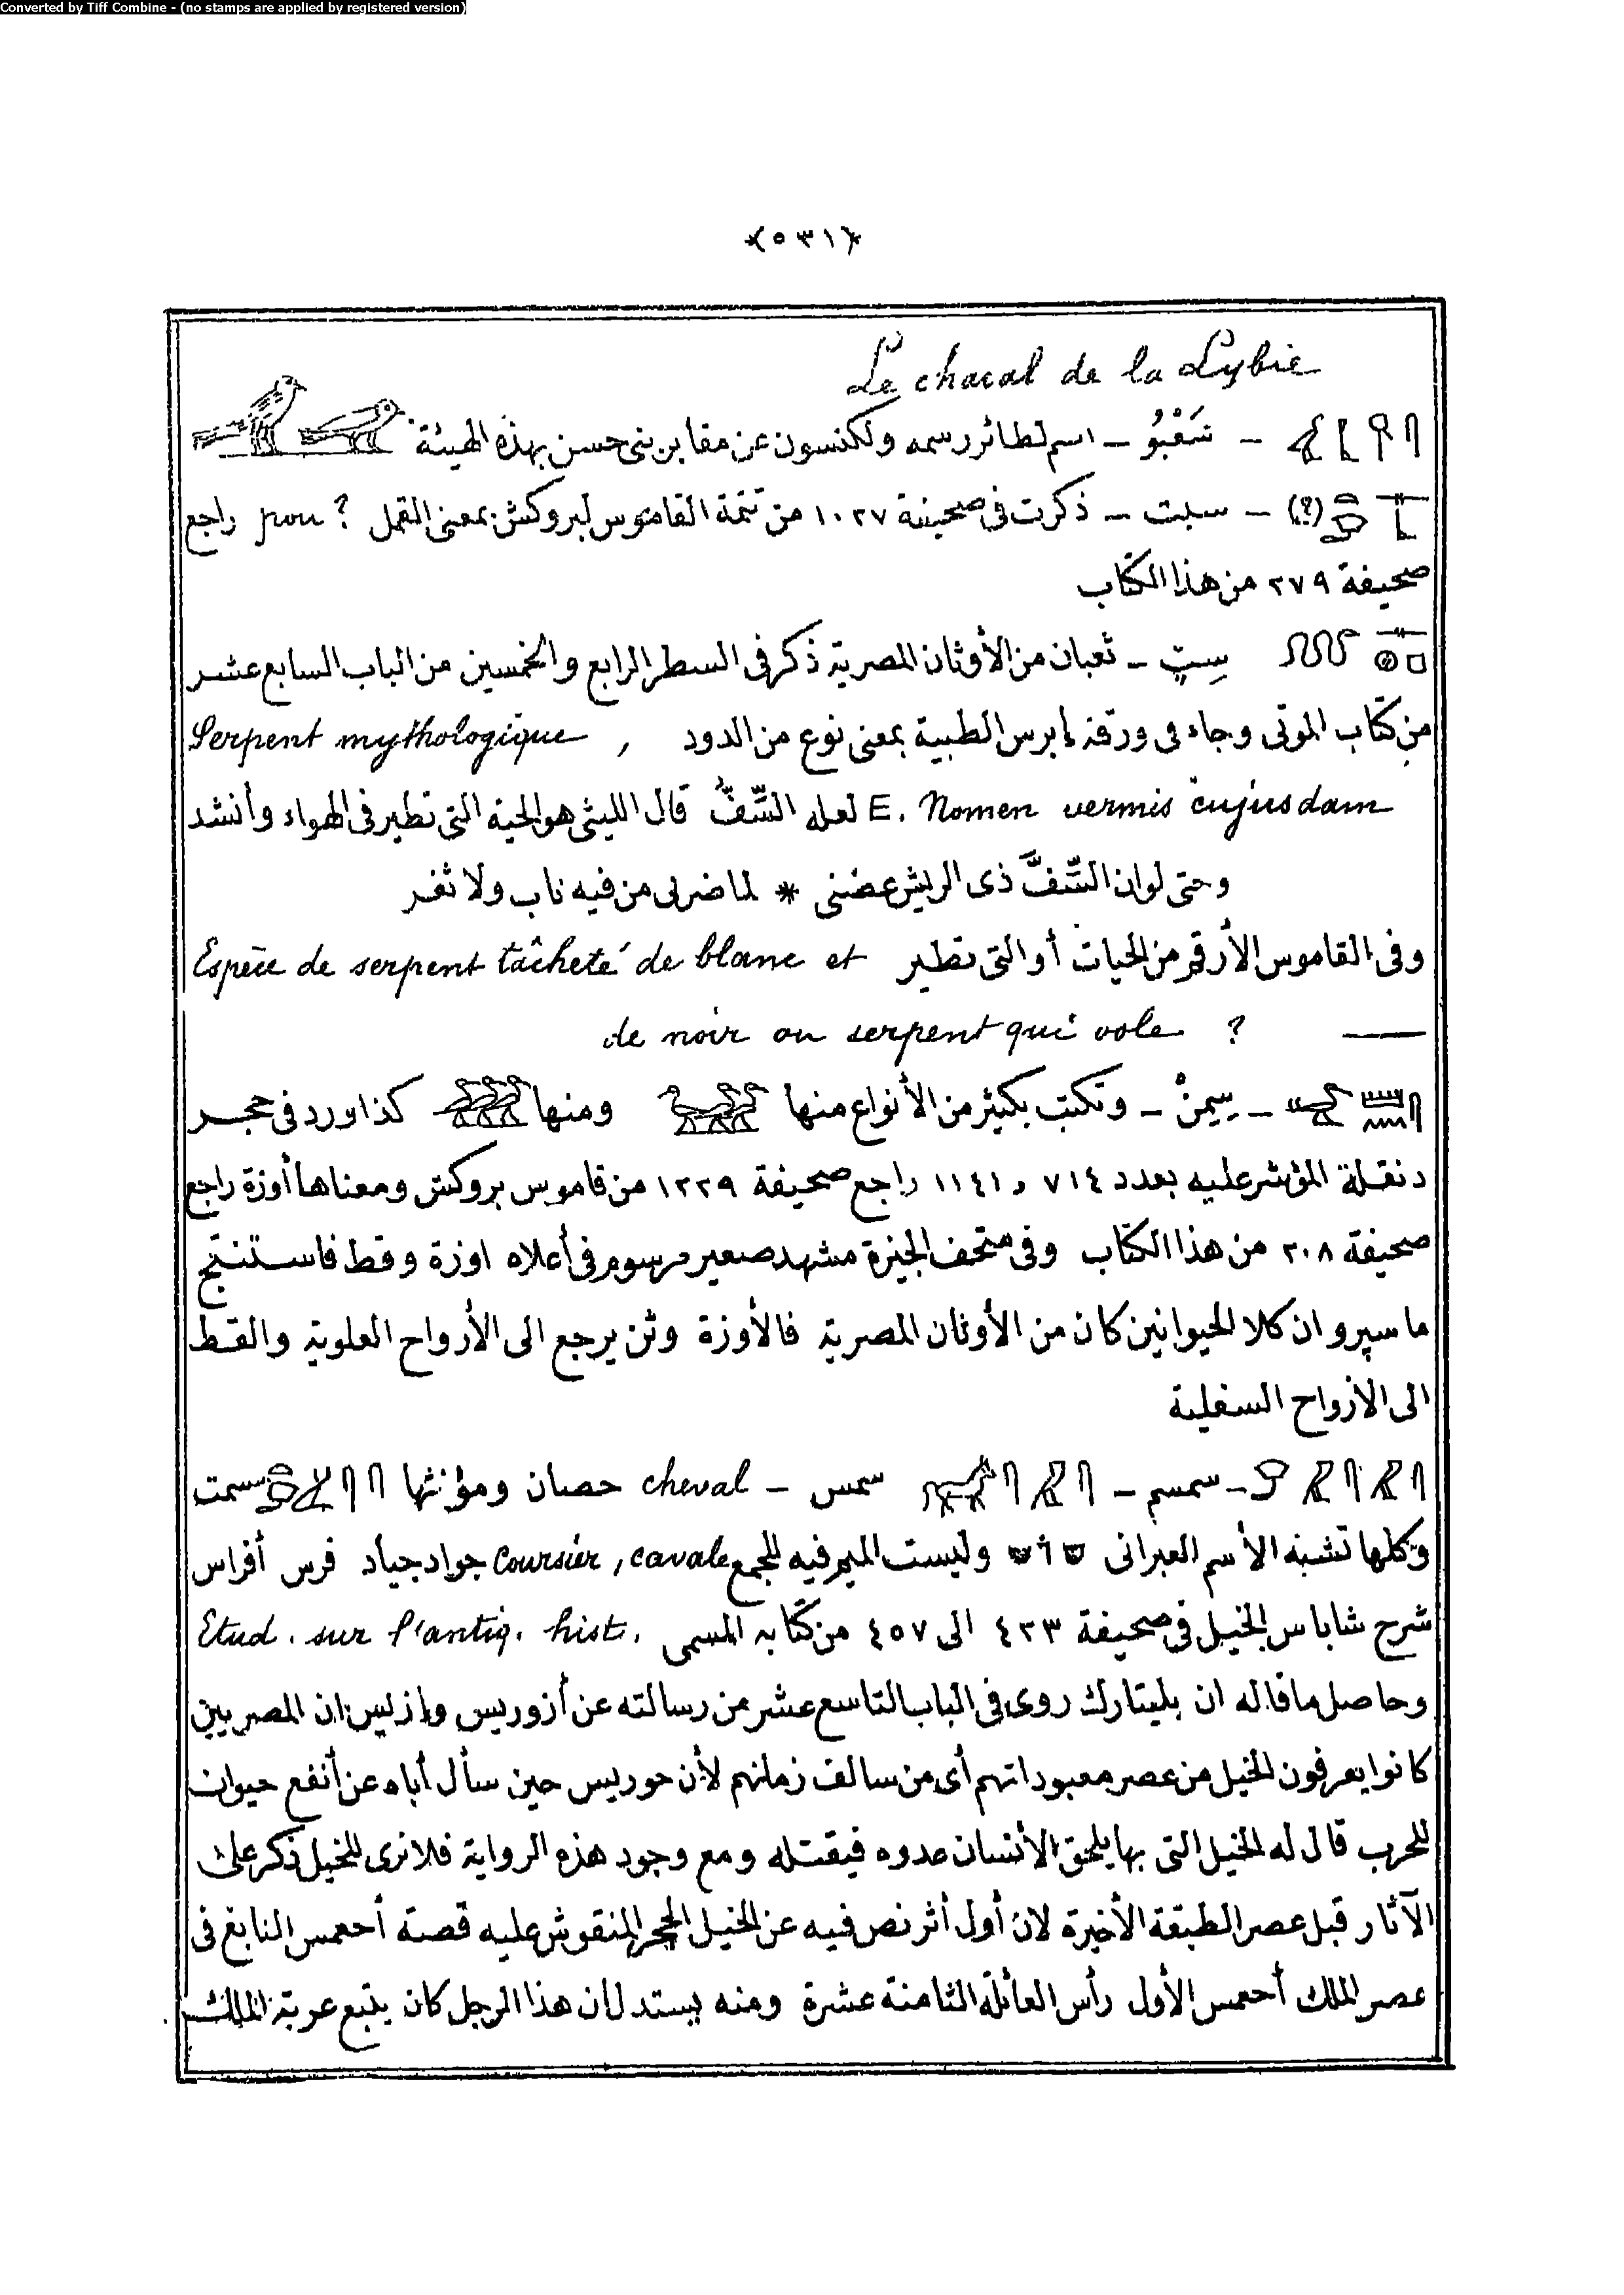 Converted by Tiff Combine - (no stamps are applied by registered version)
﴿٥٣١﴾
Le chacal de la Lybie
– سَعْبُوُ – اسم لطائر رسمه ولكنسون عن مقابر بنى حسن بهذه الهيئة
(؟) – سبت – ذكرت فى صحيفة ١٠٣٧ من تتمة القاموس لبروكش بمعنى القمل ? pou راجع
صحيفة ٢٧٩ من هذا الكتاب
سِبِت – ثعبان من الأوثان المصرية ذكر فى السطر الرابع والخمسين من الباب السابع عشر
من كتاب الموتى وجاء فى ورقة إبرس الطبية بمعنى نوع من الدود , Serpent mythologique
E. Nomen vermis cujusdam لعله السِّفُّ قال الليثى هو الحية التى تطير فى الهواء وأنشد
وحتى لوان السِّفَّ ذى الريش عضنى * لما ضرنى من فيه ناب ولا ثغر
وفى القاموس الأرقم من الحيات أو التى تطير Espèce de serpent tâcheté de blanc et
de noir ou serpent qui vole ?
– سِيمِنْ – وتكتب بكثير من الأنواع منها ومنها كذا ورد فى حجر
دنقلة المؤشر عليه بعدد ٧١٤ و ١١٤١ راجع صحيفة ١٢٢٩ من قاموس بروكش ومعناها أوزة راجع
صحيفة ٢٠٨ من هذا الكتاب وفى متحف الجيزة مشهد صغير مرسوم فى أعلاه اوزة وقط فاستنتج
ماسپرو ان كلا الحيوانين كان من الأوثان المصرية فالأوزة وثن يرجع الى الأرواح العلوية والقط
الى الأرواح السفلية
– سمسم – سمس – cheval حصان ومؤنثها سسمت
وكلها تشبه الأسم العبرانى סוס وليست الميم فيه للجمع coursier, cavale جواد جياد فرس أفراس
شرح شاباس الخيل فى صحيفة ٤٢٣ الى ٤٥٧ من كتابه المسمى Etud. sur l'antiq. hist.
وحاصل ما قاله ان بليتارك روى فى الباب التاسع عشر من رسالته عن أزوريس وإزيس ان المصريين
كانوا يعرفون الخيل من عصر معبوداتهم أى من سالف زمانهم لأن حوريس حين سأل أباه عن أنفع حيوان
للحرب قال له الخيل التى بها يلحق الأنسان عدوه فيقتله ومع وجود هذه الرواية فلا نرى للخيل ذكر على
الآثار قبل عصر الطبقة الأخيرة لان أول أثر نص فيه عن الخيل الحجر المنقوش عليه قصة أحعمس النابغ فى
عصر الملك أحعمس الأول رأس العائلة الثامنة عشرة ومنه يستدل ان هذا الرجل كان يتبع عربة الملك